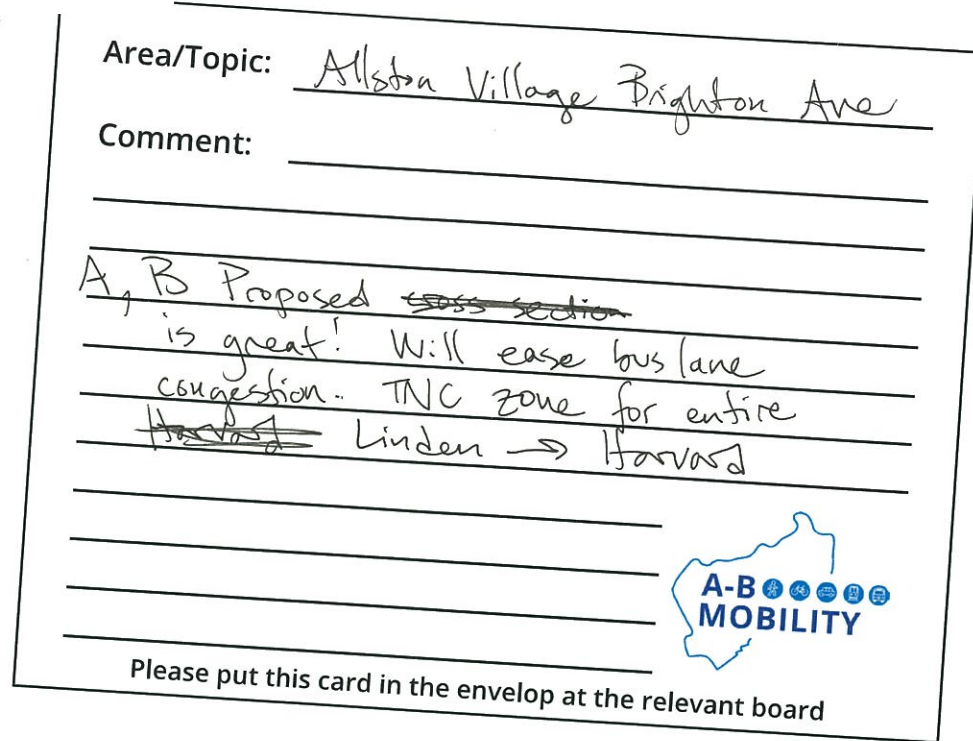 Area/Topic: Allston Village Brighton Ave
Comment:
A, B Proposed cross section
is great! Will ease bus lane
congestion. TNC zone for entire
Harvard Linden → Harvard
A-B
MOBILITY
Please put this card in the envelop at the relevant board